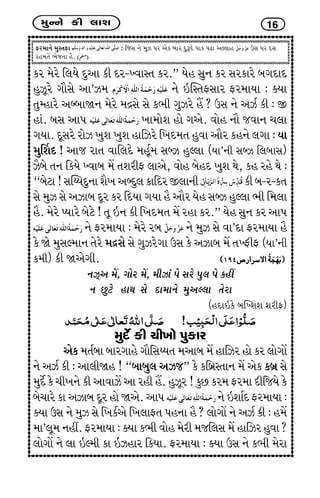 મુન્ને કી લાશ 16
ફરમાને મુસ્તફા صلى الله تعالى عليه واله وسلم : જિસ ને મુઝ પર એક બાર દુરૂદે પાક પઢા અલ્લાહ عزوجل ઉસ પર દસ
રહમતેં ભેજતા હૈ. (مسلم)
કર મેરે લિયે દુઆ કી દર-ખ્વાસ્ત કર.’’ યેહ સુન કર સરકારે બગદાદ
હુઝૂરે ગૌસે આ’ઝમ عليه رحمة الله الاكرم ને ઇસ્તિફ્સાર ફરમાયા : ક્યા
તુમ્હારે અબ્બાજાન મેરે મદ્રસે સે કભી ગુઝરે હૈં ? ઉસ ને અર્ઝ કી : જી
હાં. બસ આપ رحمة الله تعالى عليه ખામોશ હો ગએ. વોહ નૌ જવાન ચલા
ગયા. દૂસરે રોઝ ખુશ ખુશ હાઝિરે ખિદમત હુવા ઔર કહને લગા : યા
મુર્શિદ ! આજ રાત વાલિદે મર્હૂમ સબ્ઝ હુલ્લા (યા’ની સબ્ઝ લિબાસ)
ઝૈબે તન કિયે ખ્વાબ મેં તશરીફ લાએ, વોહ બેહદ ખુશ થે, કહ રહે થે :
‘‘બેટા ! સય્યિદુના શૈખ અબ્દુલ કાદિર જીલાની قدس سره الربانى કી બ-ર-કત
સે મુઝ સે અઝાબ દૂર કર દિયા ગયા હૈ ઔર યેહ સબ્ઝ હુલ્લા ભી મિલા
હૈ. મેરે પ્યારે બેટે ! તૂ ઇન કી ખિદમત મેં રહા કર.’’ યેહ સુન કર આપ
رحمة الله تعالى عليه ને ફરમાયા : મેરે રબ عزوجل ને મુઝ સે વા’દા ફરમાયા હૈ
કે જો મુસલ્માન તેરે મદ્રસે સે ગુઝરેગા ઉસ કે અઝાબ મેં તખ્ફીફ (યા’ની
કમી) કી જાએગી. (بهجة الاسرار ص١٩٤)
નઝ્અ મેં, ગોર મેં, મીઝાં પે સરે પુલ પે કહીં
ન છુટે હાથ સે દામાને મુઅલ્લા તેરા
(હદાઇકે બખ્શિશ શરીફ)
صلوا على الحبيب ! صلى الله تعالى على محمد
મુર્દે કી ચીખો પુકાર
એક મર્તબા બારગાહે ગૌસિય્યત મઆબ મેં હાઝિર હો કર લોગોં
ને અર્ઝ કી : આલીજાહ ! ‘‘બાબુલ અઝજ’’ કે કબ્રિસ્તાન મેં એક કબ્ર સે
મુર્દે કે ચીખને કી આવાઝેં આ રહી હૈં. હુઝૂર ! કુછ કરમ ફરમા દીજિયે કે
બેચારે કા અઝાબ દૂર હો જાએ. આપ رحمة الله تعالى عليه ને ઇર્શાદ ફરમાયા :
ક્યા ઉસ ને મુઝ સે ખિર્કએ ખિલાફત પહના હૈ ? લોગોં ને અર્ઝ કી : હમેં
મા’લૂમ નહીં. ફરમાયા : ક્યા કભી વોહ મેરી મજલિસ મેં હાઝિર હુવા ?
લોગોં ને લા ઇલ્મી કા ઇઝહાર કિયા. ફરમાયા : ક્યા ઉસ ને કભી મેરા